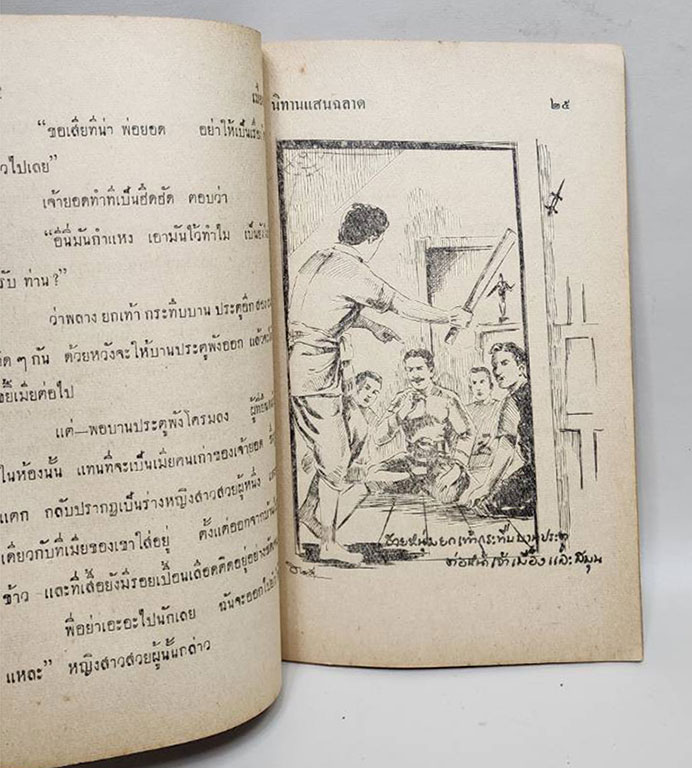 "ขอเสียทีน่า พ่อยอด อย่าให้เป็น
วไปเลย"
เจ้ายอดทำทีเป็นฮึดฮัด ตอบว่า
"อีนี่มันกำแหง เอามันไว้ทำไม
รับ ท่าน?"
ว่าพลาง ยกเท้า กระทืบบาน ประตูอีก
ติด ๆ กัน ด้วยหวังจะให้บานประตูพังออก แล้ว
เมียต่อไป
แต่—พอบานประตูพังโครมลง
ในห้องนั้น แทนที่จะเป็นเมียคนเก่าของเจ้ายอด
แตก กลับปรากฏเป็นร่างหญิงสาวสวยผู้หนึ่ง
เดียวกับที่เมียของเขาใส่อยู่ ตั้งแต่ออกจาก
ข้าว และที่เสื้อยังมีรอยเปื้อนเลือดติดอยู่อย่าง
พี่อย่าเอะอะไปนักเลย ฉันจะออกไป
แหละ" หญิงสาวสวยผู้นั้นกล่าว
นิทานแสนฉลาด ๒๕
ชายหนุ่มยกเท้ากระทืบบานประตู
ต่อหน้าเจ้าเมืองและสมุน